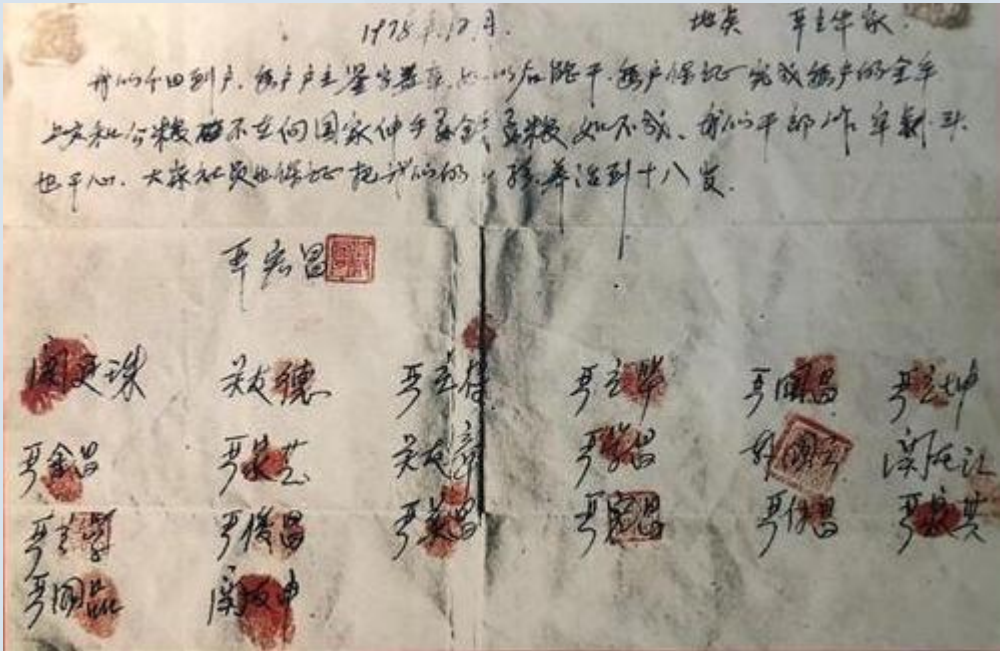 1978年12月. 地点 严立华家.
我们分田到户.每户户主签字盖章.如以后能干.每户保证完成每户的全年
上交和公粮 不在向国家伸手要钱要粮 如不成.我们干部作牢剎头
也干心.大家社员也保证把我们的小孩养活到十八岁.
严宏昌
关廷珠 关友德 严立符 严立华 严国昌 严立坤
严金昌 严家芝 关友章 严学昌 韩国云 关友江
严立学 严俊昌 严美昌 严宏昌 严付昌 严家其
严国品 关友申